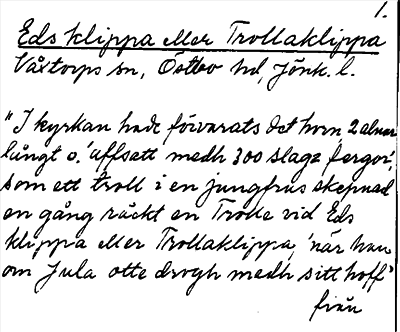 1.
Eds klippa eller Trollaklippa
Våxtorps sn, Östbo hd, Jönk. l.
"I kyrkan hade förvarats det horn 2 alnar
långt o. 'affsatt medh 300 slagz fergor',
som ett troll i en jungfrus skepnad
en gång räckt en Trolle vid Eds
klippa eller Trollaklippa, 'när han
om Jula otte drogh medh sitt hoff'
från